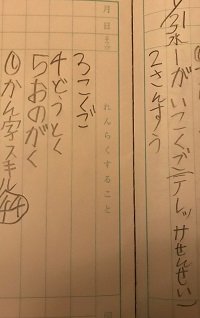 31水1がいこくご(テレッサせんせい)
2さんすう
月日
れんらくすること
3こくご
4どうとく
5おのがく
かん字スキル44